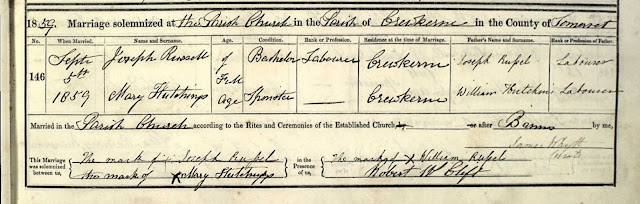 1859 Marriage solemnized at the Parish Church in the Parish of Crewkerne in the County of Somerset
No. When Married. Name and Surname. Age. Condition. Rank or Profession. Residence at the time of Marriage. Father's Name and Surname. Rank or Profession of Father.
146 Septr 5th 1859 Joseph Russell of Full Age Bachelor Labourer Crewkerne Joseph Rupel Labourer
Mary Hutchings Spinster Crewkerne William Hutchins Labourer
Married in the Parish Church according to the Rites and Ceremonies of the Established Church, by or after Banns by me,
James
This Marriage was solemnized between us, The mark of Joseph Rupel in the Presence of us, The mark of X William Rupel
the mark of X Mary Hutchings Robert W